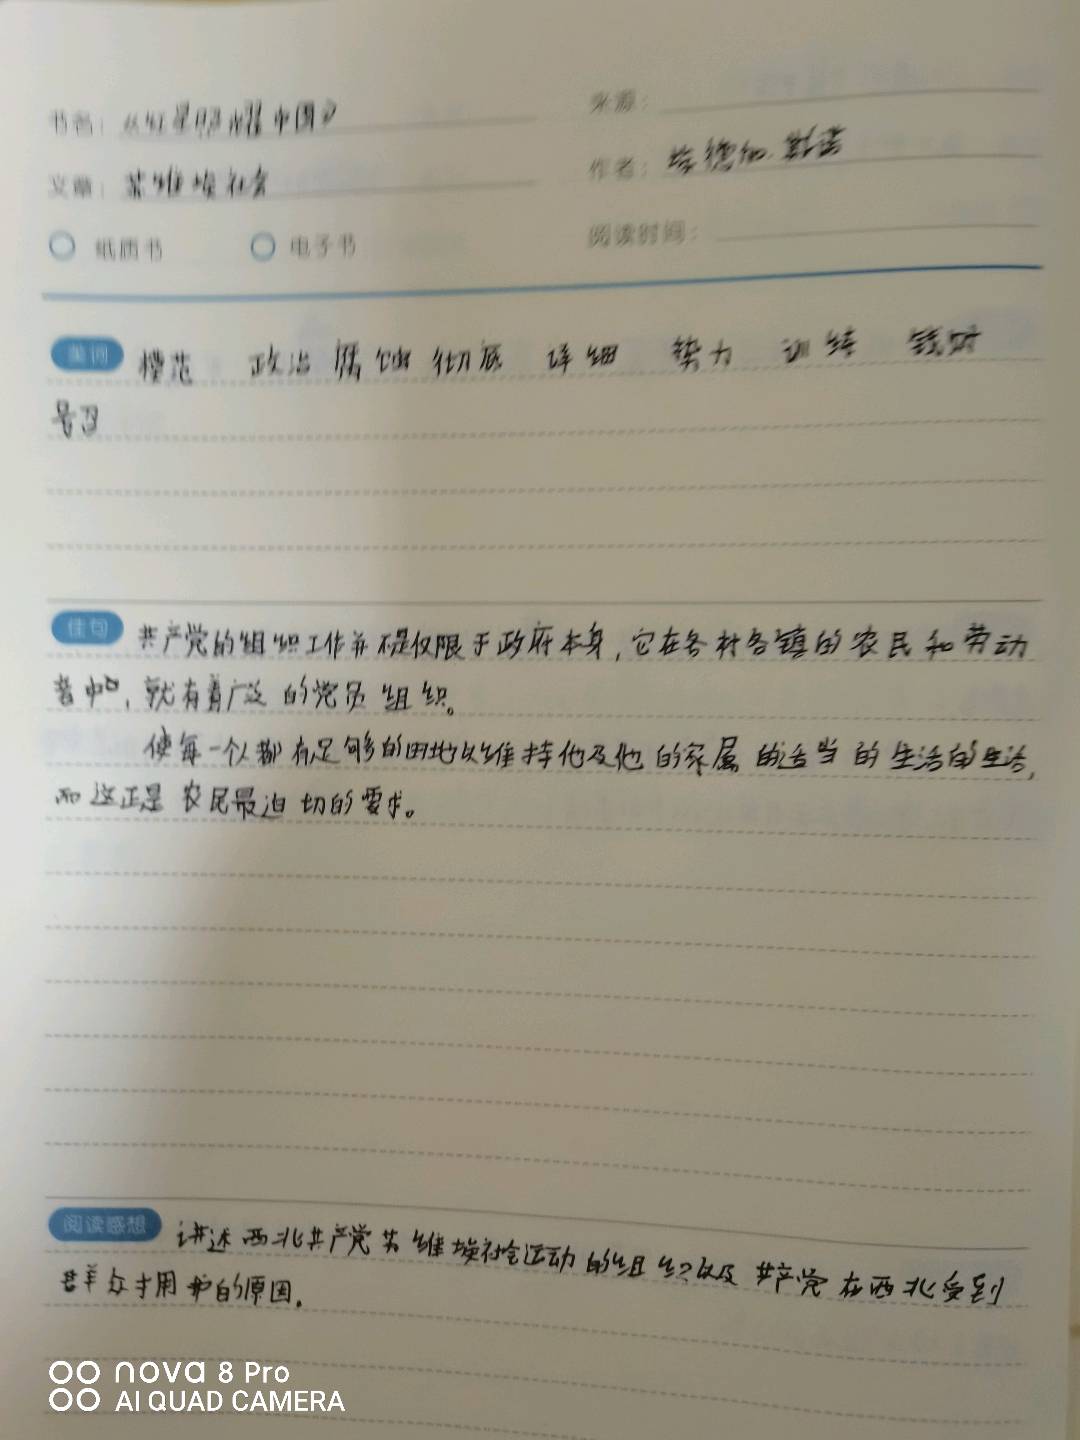 书名：《红星照耀中国》
来源：
文章：苏维埃社会
作者：埃德加.斯诺
纸质书 电子书
阅读时间：
美词 模范 政治 腐蚀 彻底 详细 势力 训练 钱财
号召
佳句 共产党的组织工作并不是仅限于政府本身，它在各村各镇的农民和劳动
者中，就有着广泛的党员组织。
使每一个人都有足够的田地以维持他及他的家属的适当的生活的生活，
而这正是农民最迫切的要求。
阅读感想 讲述西北共产党苏维埃社会运动的组织以及共产党在西北受到
群众拥护的原因.
nova 8 Pro
AI QUAD CAMERA